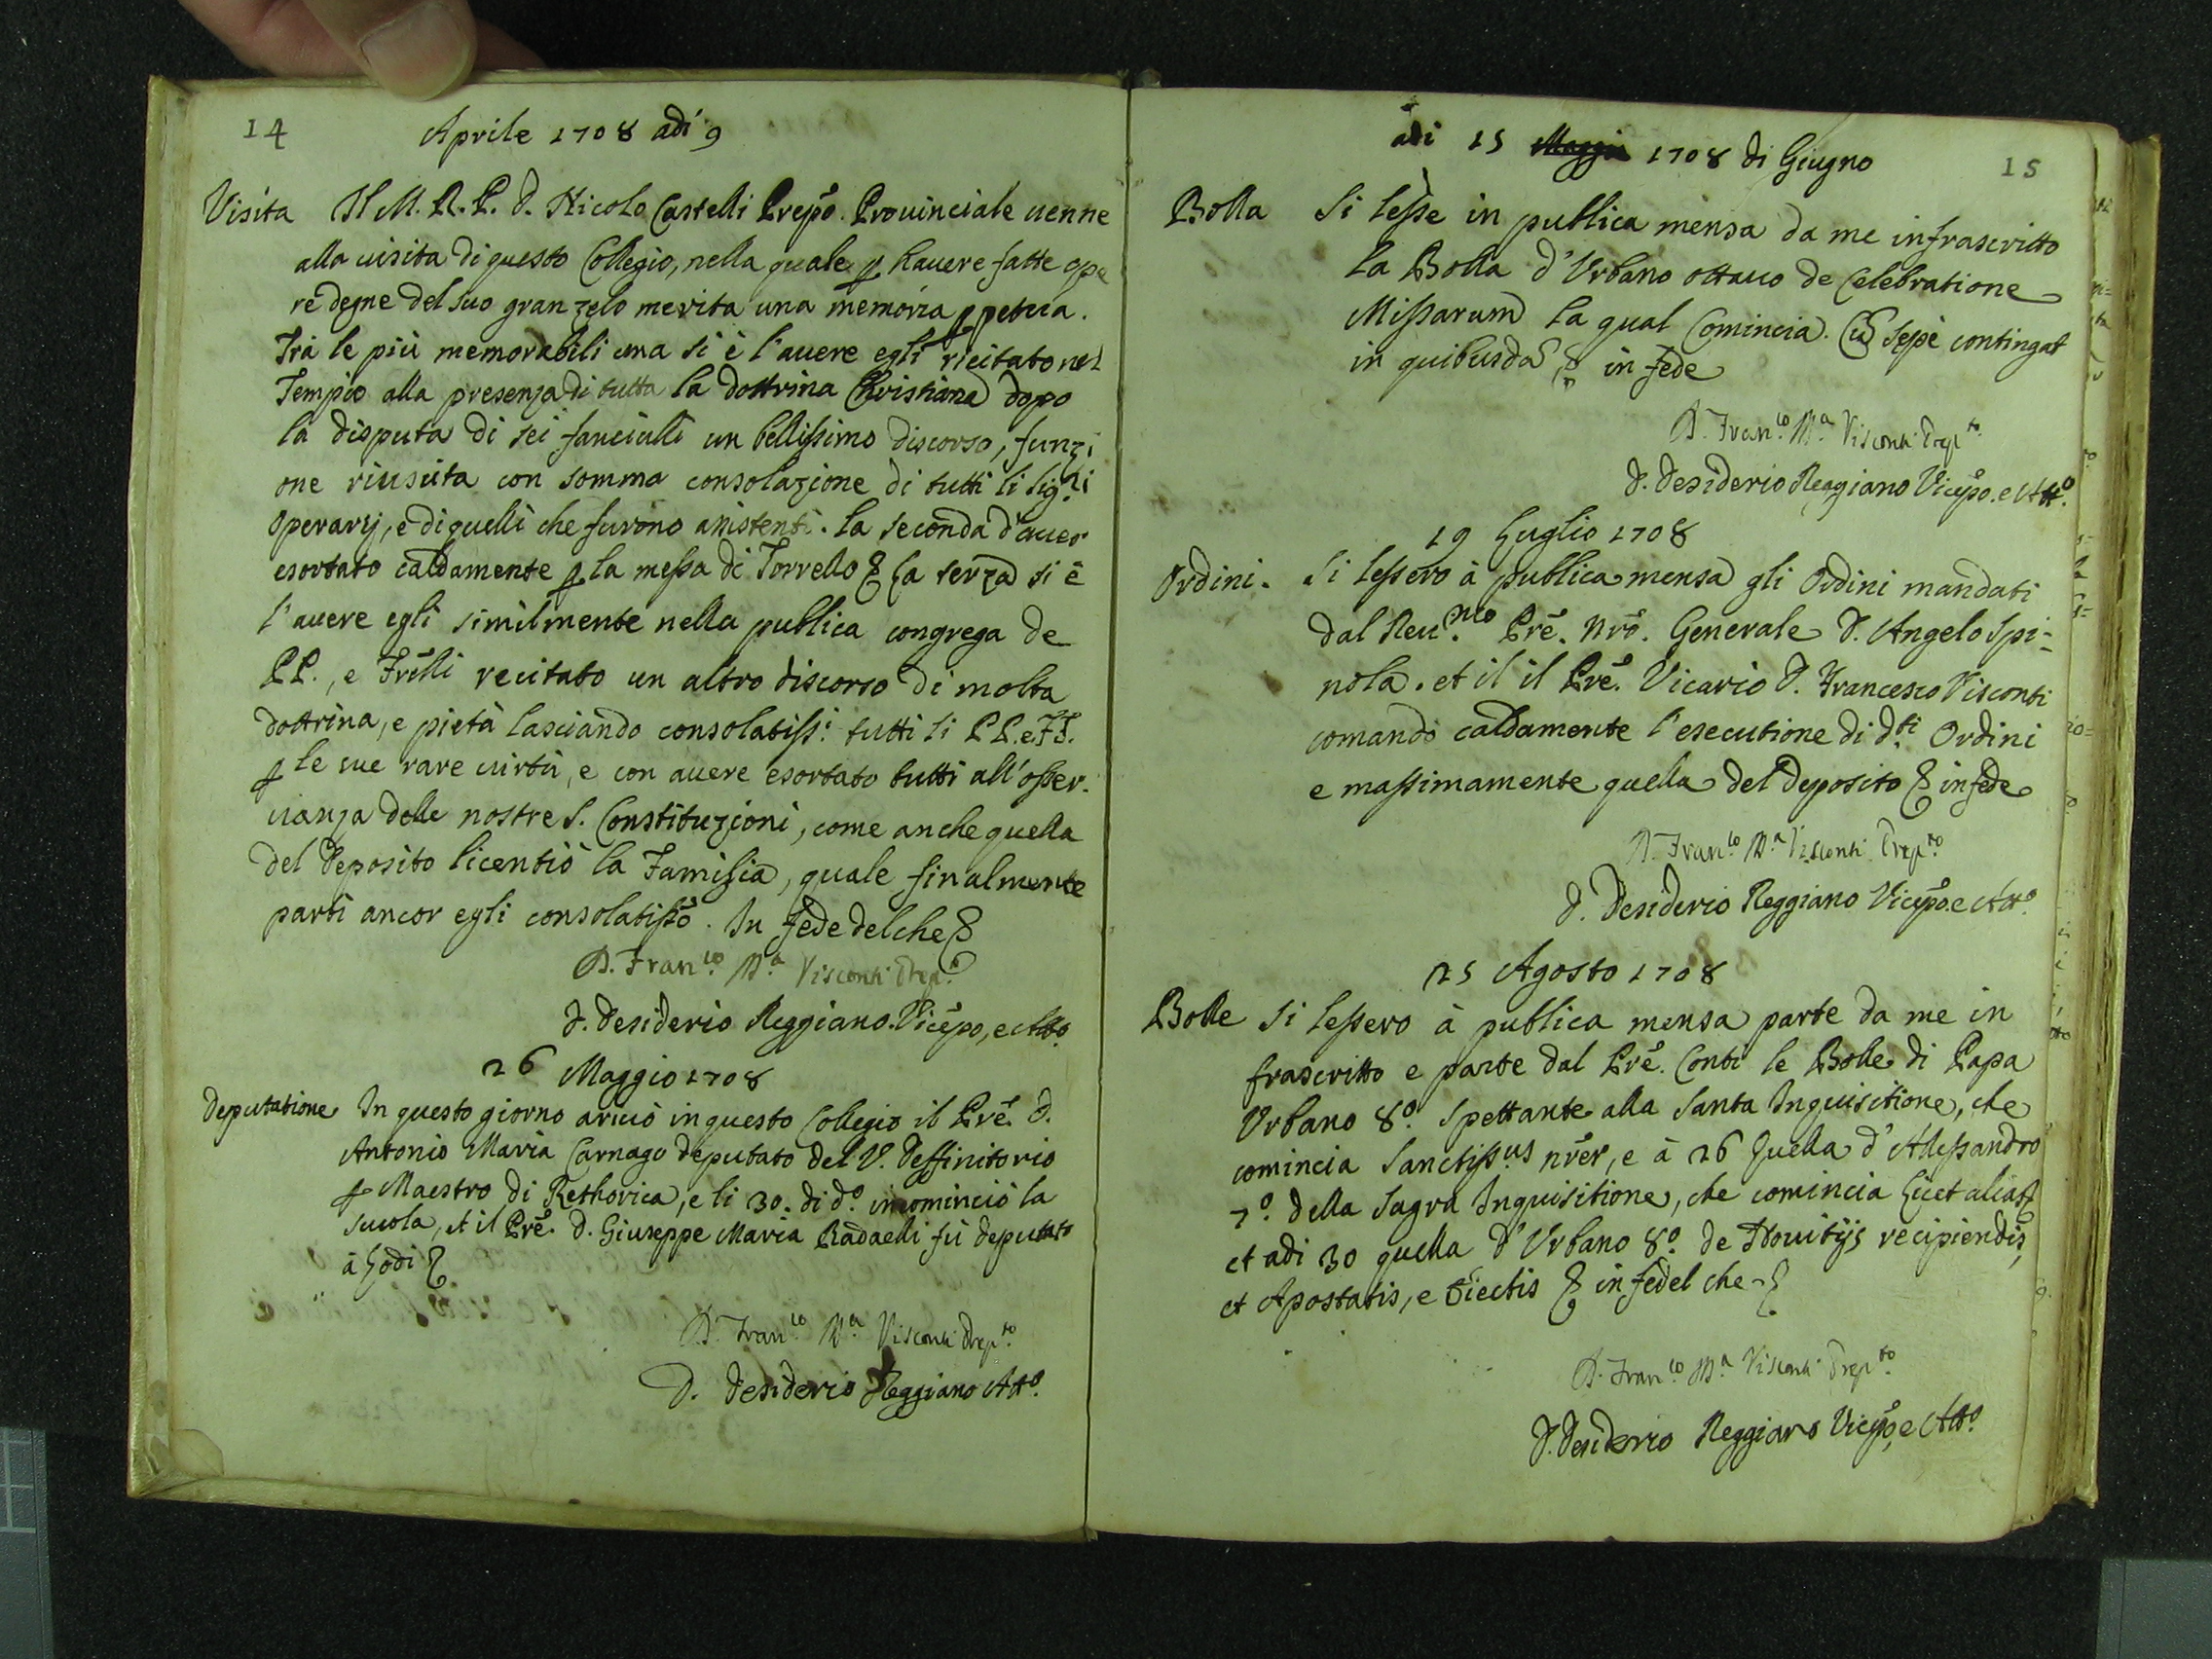 14
Aprile 1708 adi 9
Visita Il M. R. P. D. Nicolo Castelli Prepõ. Prouinciale uenne
alla uisita di questo Collegio, nella quale ꝑ hauere fatte ope
re degne del suo gran zelo merita una memoria ꝑpetua.
Trà le più memorabili una si è l'auere egli ricitato nel
Tempio alla presenza di tutta la dottrina Christiana dopo
la disputa di sei fanciulli un bellissimo discorso, funzi
one riuscita con somma consolazione di tutti li Sig.ri
Operarij, e di quelli che furono assistenti. la seconda d'auer
esortato caldamente ꝑ la messa di Torrello & la terza si è
l'auere egli similmente nella publica congrega de
PP., e Frẽlli recitato un altro discorso di molta
dottrina, e pietà lasciando consolatiss.i tutti li PP. e FF.
ꝑ le sue rare uirtù, e con auere esortato tutti all'osser.
uanza delle nostre S. Constituzioni, come anche quella
del deposito licentiò la Familia, quale finalmente
partì ancor egli consolatissõ. In fede del che &
D. Fran.co M.a Visconti Prep.o
D. Desiderio Reggiano Vicepõ, e Atto.
26 Maggio 1708
Deputatione In questo giorno ariuò in questo Collegio il Prẽ. D.
Antonio Maria Carnago deputato del V. Deffinitorio
ꝑ Maestro di Rethorica, e li 30. di d.o incominciò la
scuola, et il Prẽ. D. Giuseppe Maria Radaelli fù deputato
à Lodi &
D. Fran.co M.a Visconti Prep.to
D. Desiderio Reggiano Att.o
15
adi 15 1708 di Giugno
Bolla Si lesse in publica mensa da me infrascritto
la Bolla d'Vrbano ottauo de Celebratione
Missarum la qual Comincia. Cũ sepè contingat
in quibusdã & in fede
D. Fran.co M.a Visconti Prep.to
D. Desiderio Reggiano Vicepõ. e Att.o
19 Luglio 1708
Ordini. Si lessero à publica mensa gli Ordini mandati
dal Reu.mo Prẽ. Nrõ. Generale D. Angelo Spi-
nola. et il il Prẽ. Vicario D. Francesco Visconti
comandò caldamente l'esecutione di d.ti Ordini
e massimamente quella del deposito & in fede
D. Fran.co M.a Visconti Prep.to
D. Desiderio Reggiano Vicepõ. e Att.o
25 Agosto 1708
Bolle Si lessero à publica mensa parte da me in
frascritto e parte dal Prẽ. Conti le Bolle di Papa
Vrbano 8.o spettante alla Santa Inquisitione, che
comincia Sanctiss.us nr̃er, e à 26 Quella d'Alessandro
7.o della Sagra Inquisitione, che comincia Licet alias
et adi 30 quella d'Vrbano 8.o de Nouitijs recipiendis,
et Apostatis, e Eiectis & in fedel che &
D. Fran.co M.a Visconti Prep.to
D. Desiderio Reggiano Vicepõ, e Att.o